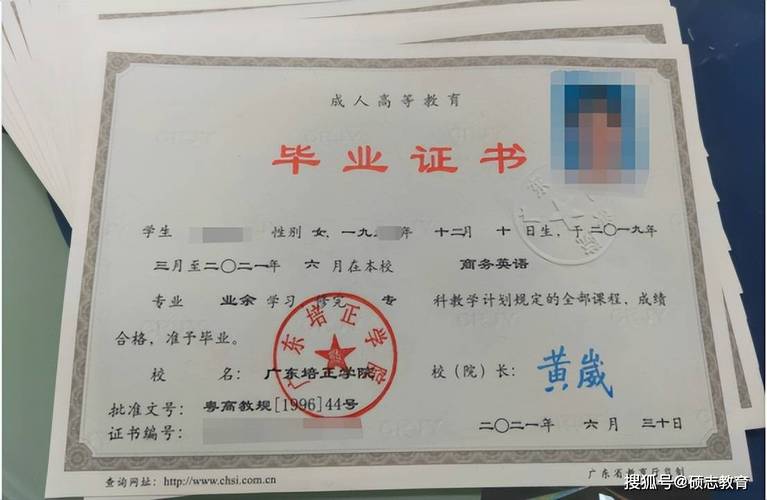 成人高等教育
毕业证书
学生 性别 女, 一九 年 十二月 十日生, 于二〇一九年
三月至二〇二一年 六 月在本校 商务英语
专业 业余 学习 修完 专 科教学计划规定的全部课程, 成绩
合格, 准予毕业。
校 名: 广东培正学院 校(院)长: 黄崴
广东培正学院
批准文号: 粤高教规[1996]44号
证书编号: 二〇二一年 六 月 三十日
查询网址: http://www.chsi.com.cn 广东省教育厅监制
搜狐号@硕志教育